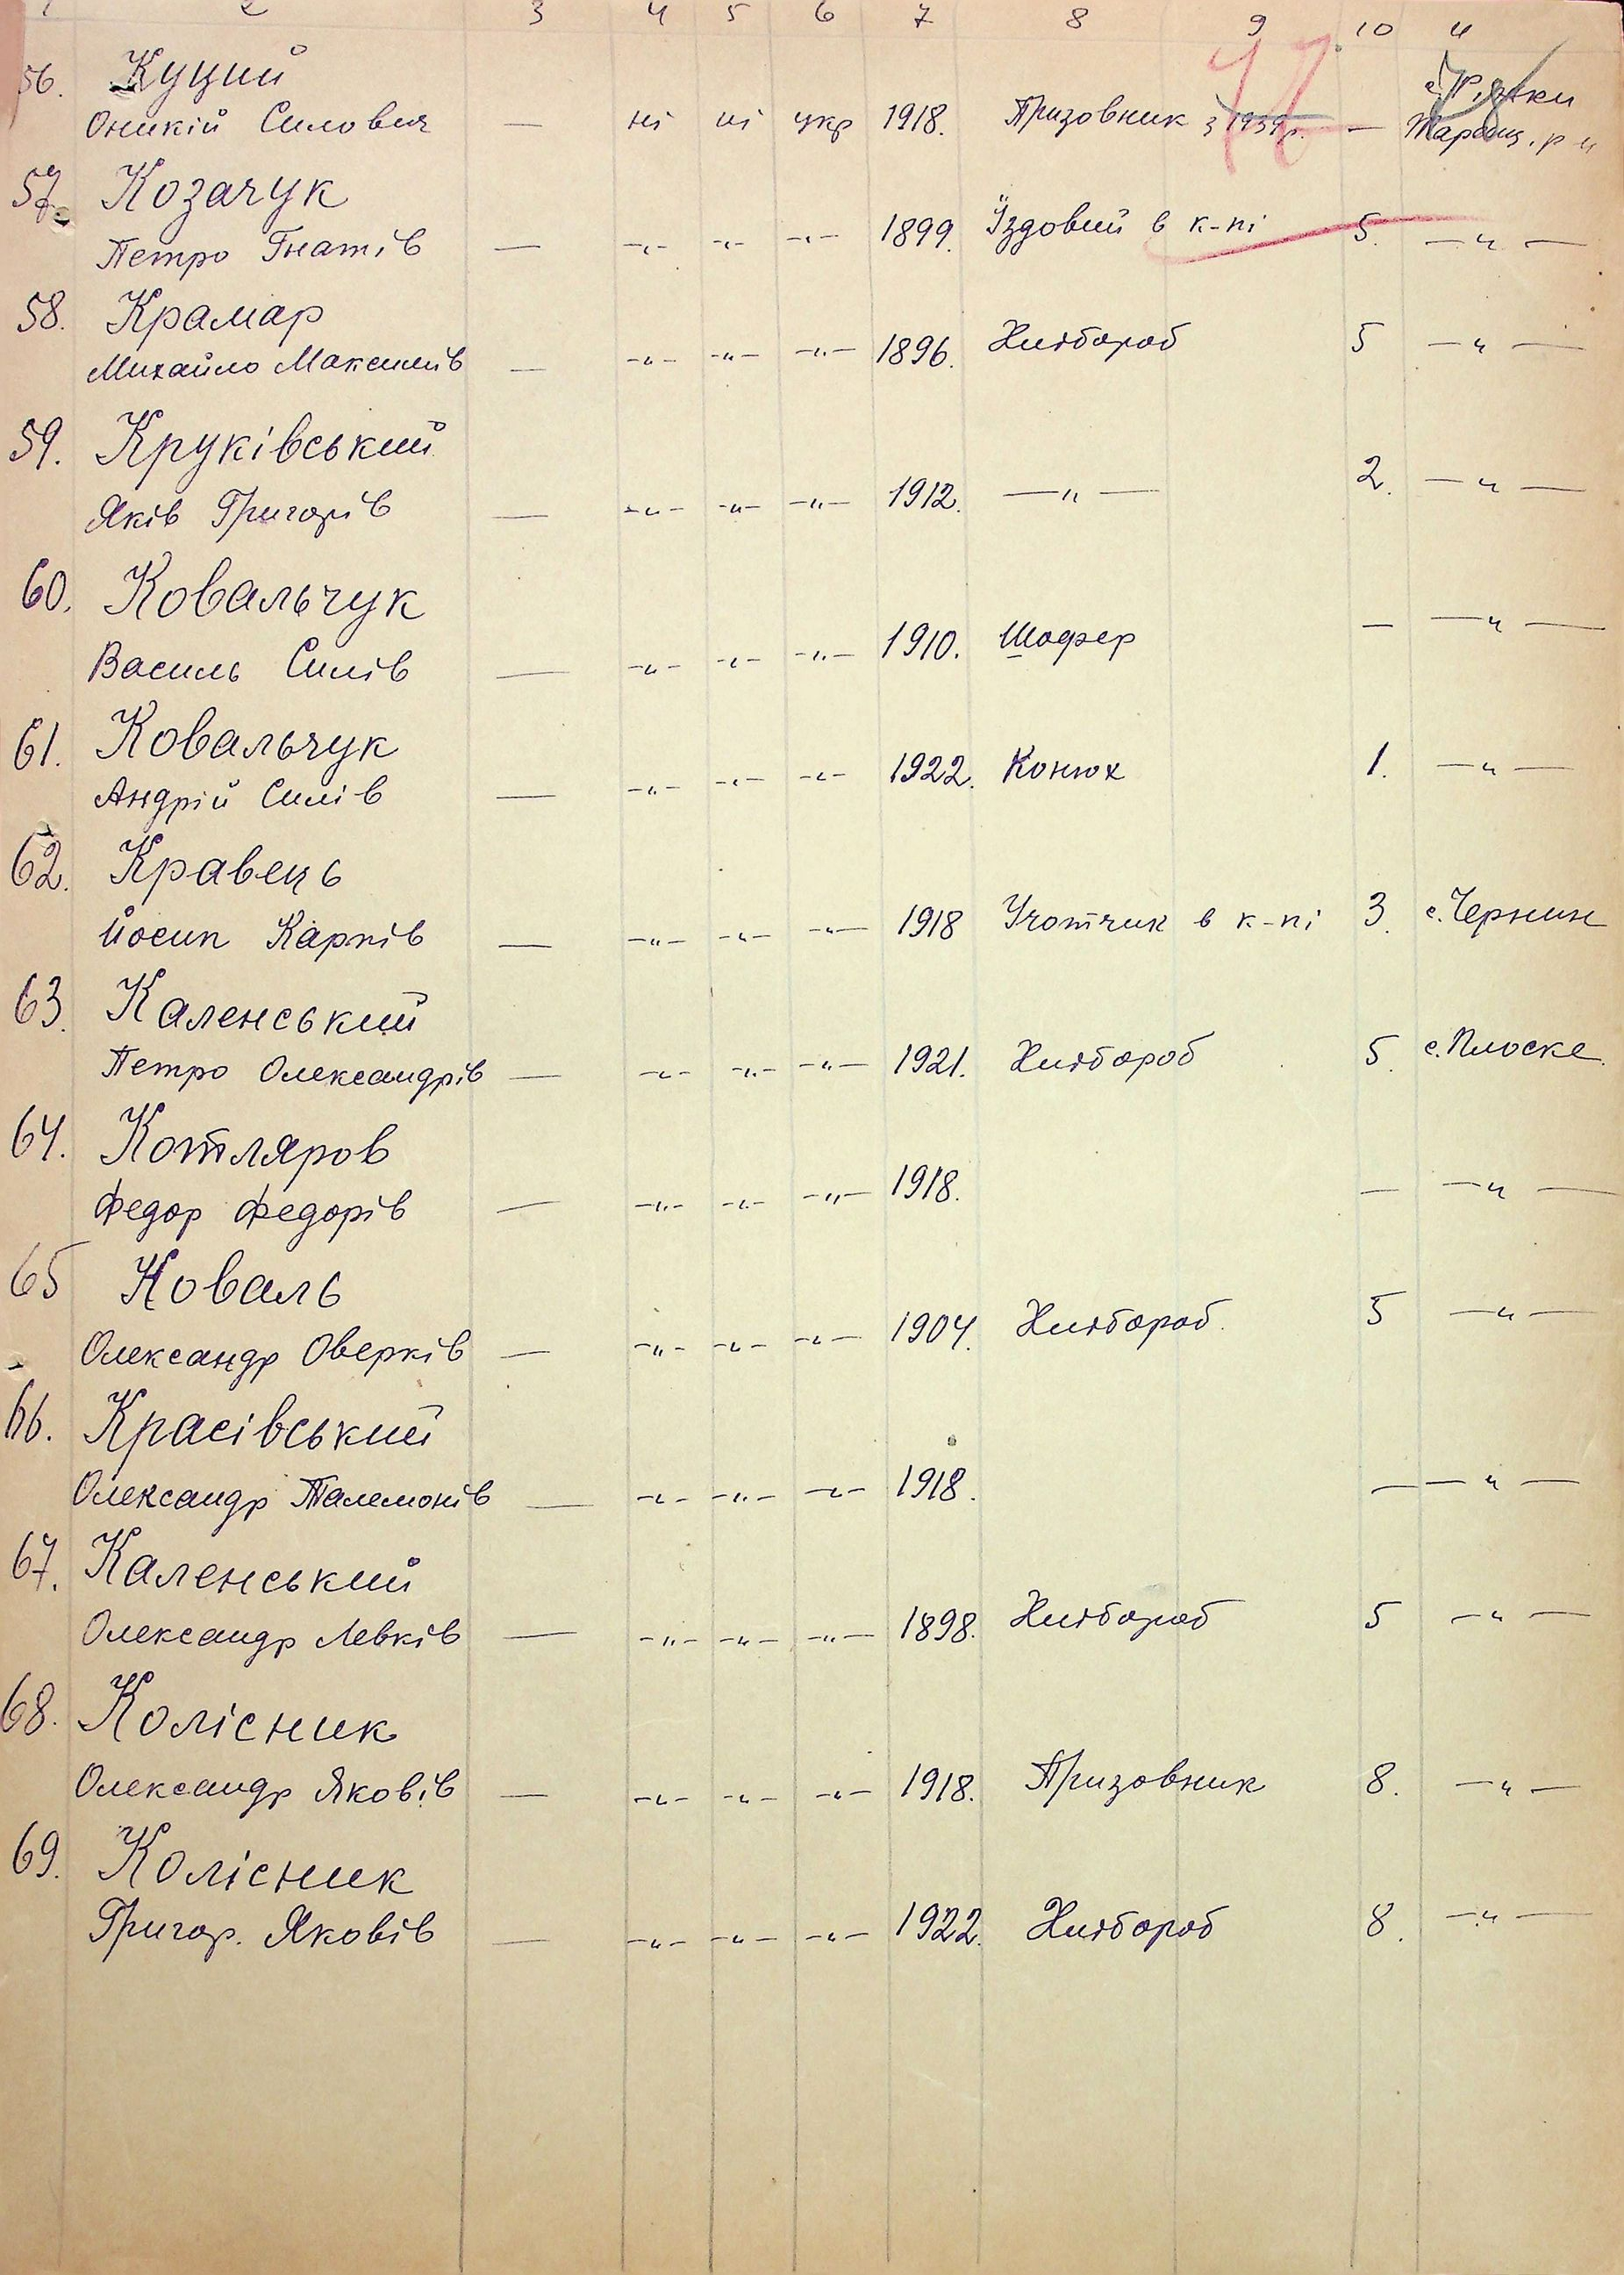 1 2 3 4 5 6 7 8 9 10 11
56. Куций
Оникій Силович — ні ні укр 1918. Призовник з 1939р. — с. Річки Таращ. р-н
57. Козачук
Петро Гнатів — -"- -"- -"- 1899. Їздовий в к-пі 5. —"—
58. Крамар
Михайло Максимів — -"- -"- -"- 1896. Хлібороб 5 —"—
59. Круківський
Яків Григорів — -"- -"- -"- 1912. —"— 2. —"—
60. Ковальчук
Василь Силів — -"- -"- -"- 1910. Шофер — —"—
61. Ковальчук
Андрій Силів — -"- -"- -"- 1922. Конюх 1. —"—
62. Кравець
Йосип Карпів — -"- -"- -"- 1918 Учотчик в к-пі 3. с. Чернин
63. Каленський
Петро Олександрів — -"- -"- -"- 1921. Хлібороб 5. с. Плоске
64. Котляров
Федор Федорів — -"- -"- -"- 1918. — —"—
65 Коваль
Олександр Оверків — -"- -"- -"- 1904. Хлібороб. 5 —"—
66. Красівський
Олександр Палемонів — -"- -"- -"- 1918. — —"—
67. Каленський
Олександр Левків — -"- -"- -"- 1898. Хлібороб 5 —"—
68. Колісник
Олександр Яковів — -"- -"- -"- 1918. Призовник 8. —"—
69. Колісник
Григор. Яковів — -"- -"- -"- 1922. Хлібороб 8. —"—